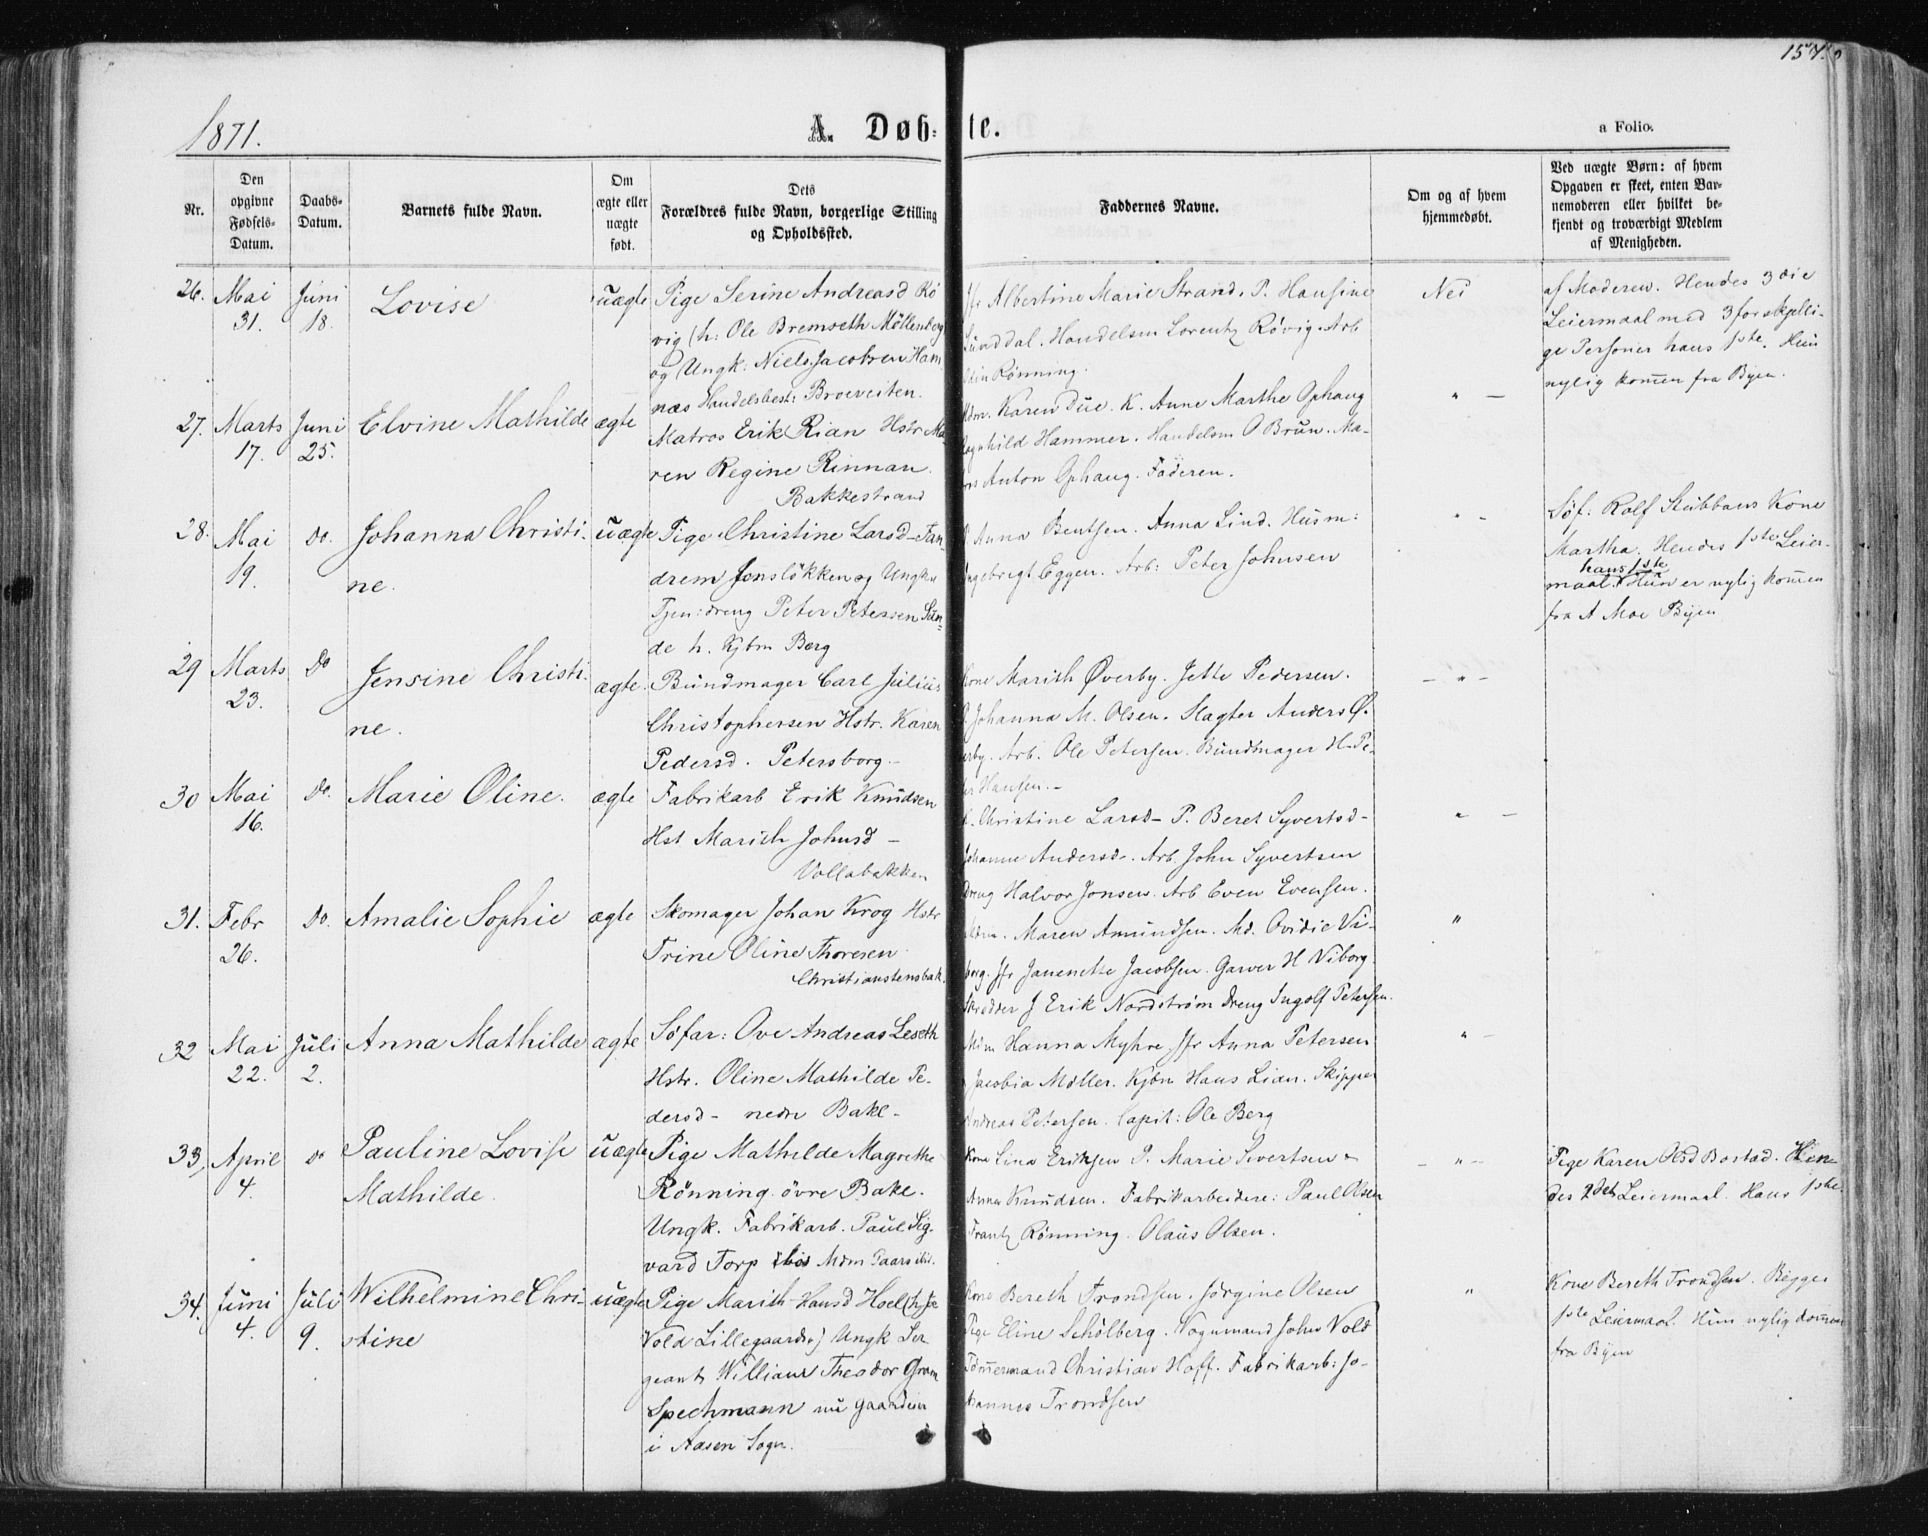 157.
1871.
A. Døb-
te.
a Folio.
Nr.
Den opgivne Fødsels-Datum.
Daabs-Datum.
Barnets fulde Navn.
Om ægte eller uægte født.
Dets Forældres fulde Navn, borgerlige Stilling og Opholdssted.
Faddernes Navne.
Om og af hvem hjemmedøbt.
Ved uægte Børn: af hvem Opgaven er skeet, enten Barnemoderen eller hvilket bekjendt og troværdigt Medlem af Menigheden.
26. Mai 31. Juni 18. Lovise uægte
Pige Serine Andreasd Rö
vig (h: Ole Bremseth Möllenberg
og Ungk: Niels Jacobsen Ham
næs Handelsbest: Broeveiten.
Jfr Albertine Marie Strand. P. Hansine
Sunddal. Handelsm Lorentz Røvig. Arb
Rønning.
Nei
af Moderen. Hendes 3die
Leiermaal med 3 forskjelli-
ge Personer hans 1ste. Hun
nylig kommen fra Byen.
27. Marts 17. Juni 25. Elvine Mathilde ægte
Matros Erik Rian Hstr Ma-
ren Regine Rinnan.
Bakkestrand
Mdm. Karen Due. K. Anne Marthe Ophaug
Ragnhild Hammer. Handelsm O Brun. Ma-
tros Anton Ophaug. Faderen.
" -
28. Mai 19. do. Johanna Christi-
ne. uægte
Pige Christine Larsd Tan-
drem Jonslökken og Ungk
Tjen: dreng Peter Petersen San-
de h. Kjbm Berg
P. Anna Bentsen. Anna Lind. Husm:
Ingebrigt Eggen. Arb: Peter Johnsen
" -
Söf: Rolf Stubbans Kone
Martha. Hendes 1ste Leier-
hans 1ste
maal. Hun er nylig kommen
fra A Moe Byen
29 Marts 23. do Jensine Christi-
ne. ægte.
Bundmager Carl Julius
Christophersen Hstr. Karen
Pedersd. Petersborg.
Kone Marith Øverby. Jette Pedersen.
P. Johanna M. Olsen. Slagter Anders Ø-
verby. Arb. Ole Petersen. Bundmager H. Pe-
ter Hansen.
- " -
30 Mai 16. do. Marie Oline. ægte
Fabrikarb Erik Knudsen
Hst Marith Johnsd -
Vollabakken
K. Christine Larsd - P. Beret Syvertsd -
Johanne Andersd. Arb. John Syvertsen
Dreng Halvor Jonsen. Arb Even Evensen.
" -
31. Febr 26. do. Amalie Sophie ægte
Skomager Johan Krog Hstr
Trine Oline Thoresen
Christianstensbak.
Mdm. Maren Amundsen. Md. Ovidie Vi-
borg. Jfr Janenette Jacobsen. Garver H Viborg.
Skrædder J Erik Nordstrøm Dreng Ingolf Petersen.
"
32 Mai 22. Juli 2. Anna Mathilde ægte
Söfar: Ove Andreas Leseth
Hstr. Oline Mathilde Pe-
dersd - nedre Bakl -
Mdm Hanna Myhre Jfr Anna Petersen
Jacobia Møller. Kjbm Hans Lian. Skipper
Andreas Petersen. Capit: Ole Berg
" -
33, April 4. do Pauline Lovise
Mathilde. uægte
Pige Mathilde Magrethe
Rönning øvre Bakl.
Ungk. Fabrikarb. Paul Sig-
vard Torp hos Mdm
Kone Lina Eriksen P. Marie Sivertsen
Anna Knudsen. Fabrikarbeidere: Paul Olsen
Frantz Rønning. Olaus Olsen.
- " -
Pige Karen Olsd Bostad. Hen-
des 2det Leiermaal. Hans 1ste.
34. Juni 4. Juli 9. Wilhelmine Chri-
stine uægte
Pige Marith Hansd Hoel (h.
Vold Lillegaarden) Ungk Ser
geant William Theodor Gram
Spechmann nu gaardeier
i Aasen Sogn.
Kone Bereth Trondsen. Jörgine Olsen
Pige Eline Schölberg. Vognmand John Vold
Tömmermand Christian Hoff. Fabrikarb: Jo-
hannes Trondsen
"
Kone Bereth Trondsen. Begges
1ste Leiermaal. Hun nylig kommen
fra Byen